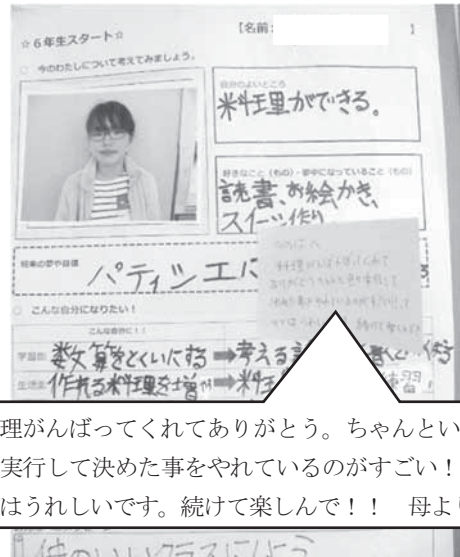 ☆6年生スタート☆
【名前: 】
○ 今のわたしについて考えてみましょう。
自分のよいところ
料理ができる。
好きなこと(もの)・夢中になっていること(もの)
読書、お絵かき、
スイーツ作り
将来の夢や目標
パティシエに
○ こんな自分になりたい!
こんな自分に!!
学習面 算数をとくいにする ➡考える
生活面 作れる料理を増や ➡料 練習
理がんばってくれてありがとう。ちゃんとい
実行して決めた事をやれているのがすごい!
はうれしいです。続けて楽しんで!! 母より